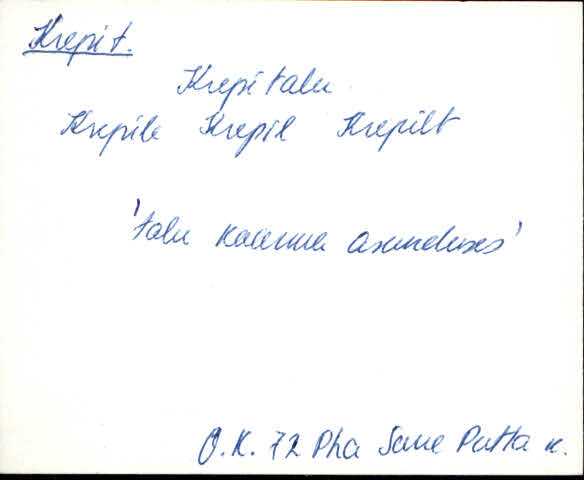 Krepit.
Krepi talu
Krepile Krepil Krepilt
'talu Kaerma asunduses'
O.K. 72 Pha Saue Putla k.